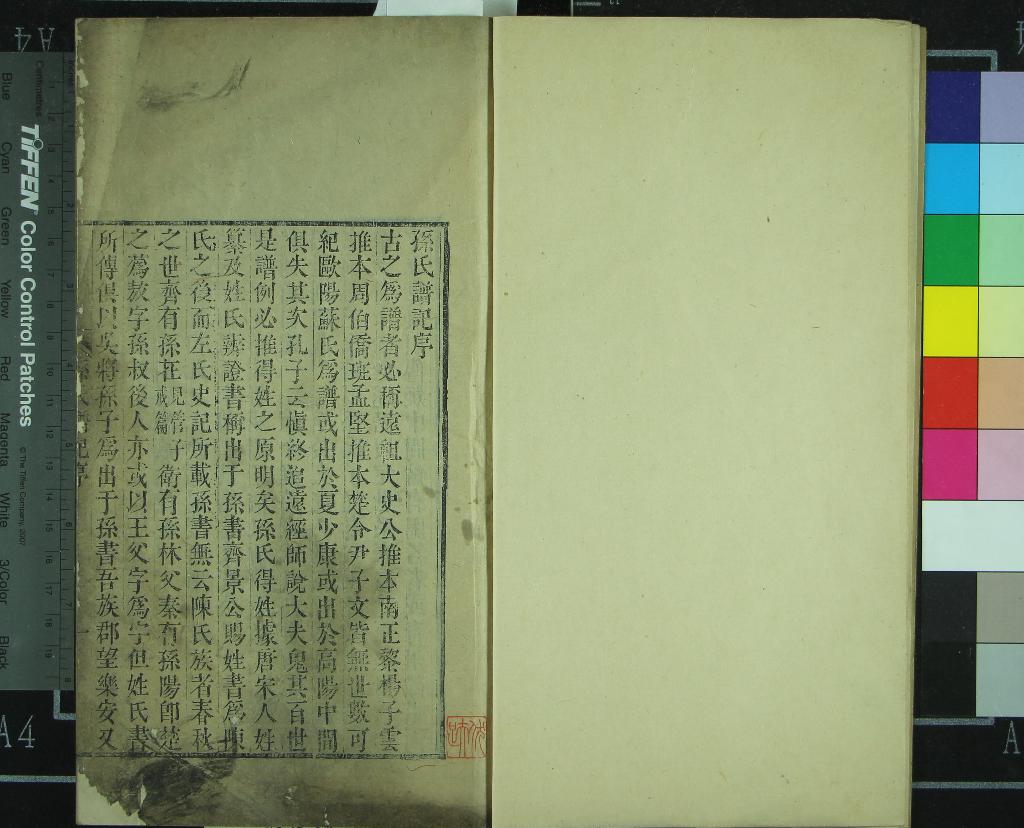 孫氏譜記序
古之為譜者必稱遠祖大史公推本南正黎楊子雲
推本周伯僑班孟堅推本楚令尹子文皆無世數可
紀歐陽蘇氏為譜或出於夏少康或出於高陽中間
俱失其次孔子云慎終追遠經師說大夫鬼其百世
是譜例必推得姓之原明矣孫氏得姓據唐宋人姓
纂及姓氏辨證書稱出于孫書齊景公賜姓書為陳
氏之後而左氏史記所載孫書無云陳氏族者春秋
之世齊有孫在見管子戒篇衛有孫林父秦有孫陽卽楚
之蒍敖字孫叔後人亦或以王父字為字但姓氏書
所傳俱以吳將孫子為出于孫書吾族郡望樂安又
TIFFEN Color Control Patches
© The Tiffen Company, 2007
Centimetres
Blue
Cyan
Green
Yellow
Red
Magenta
White
3/Color
Black
A4
A4
A